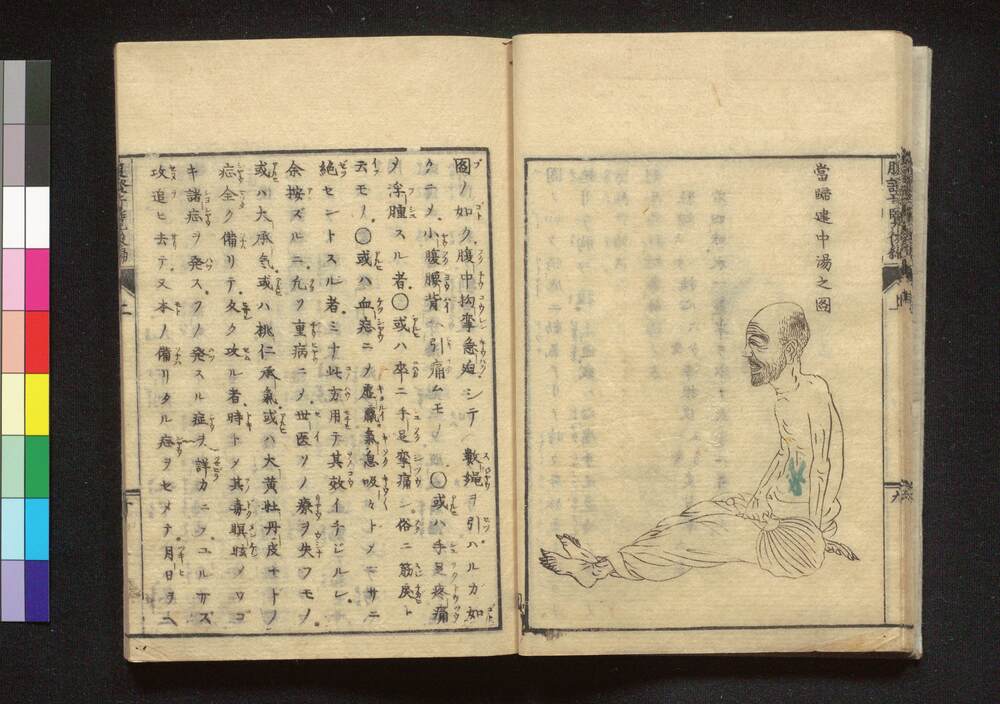 當歸建中湯之圖
圖ノ如ク腹中拘攣急迫シテ數繩ヲ引ハルガ如
クニ〆小腹腰背ヘ引痛ムモノ〇或ハ手足疼痛
シ浮腫スル者〇或ハ卒ニ手足攣痛シ俗ニ筋戾ト
云モノ〇或ハ血症ニ〆虛羸氣息吸々ト〆ニサニ
絕セントスル者ミナ此方用テ其效イチジルシ
余按ズルニ凢ソ重病ニ〆世医ソノ療ヲ失フモノ
或ハ大承氣或ハ桃仁承氣或ハ大黃牡丹皮ナドノ
症全ク備リテ久ク攻ル者時ト〆其毒瞑眩〆ワゴ
キ諸症ヲ発ス其ノ発スル症ヲ詳カニ
攻追ヒ去テ又本ノ備リタル症ヲセメテ月日ヲ